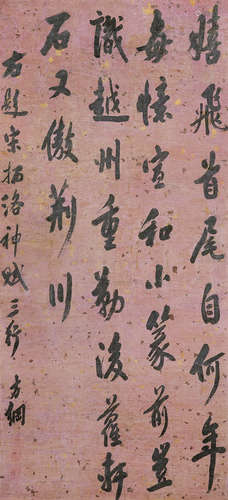 嬉飛首尾自何年
每憶宣和小篆前豈
識越州重勒後蘿軒
石又儆荊川
右題宋拓洛神賦三行 方綱